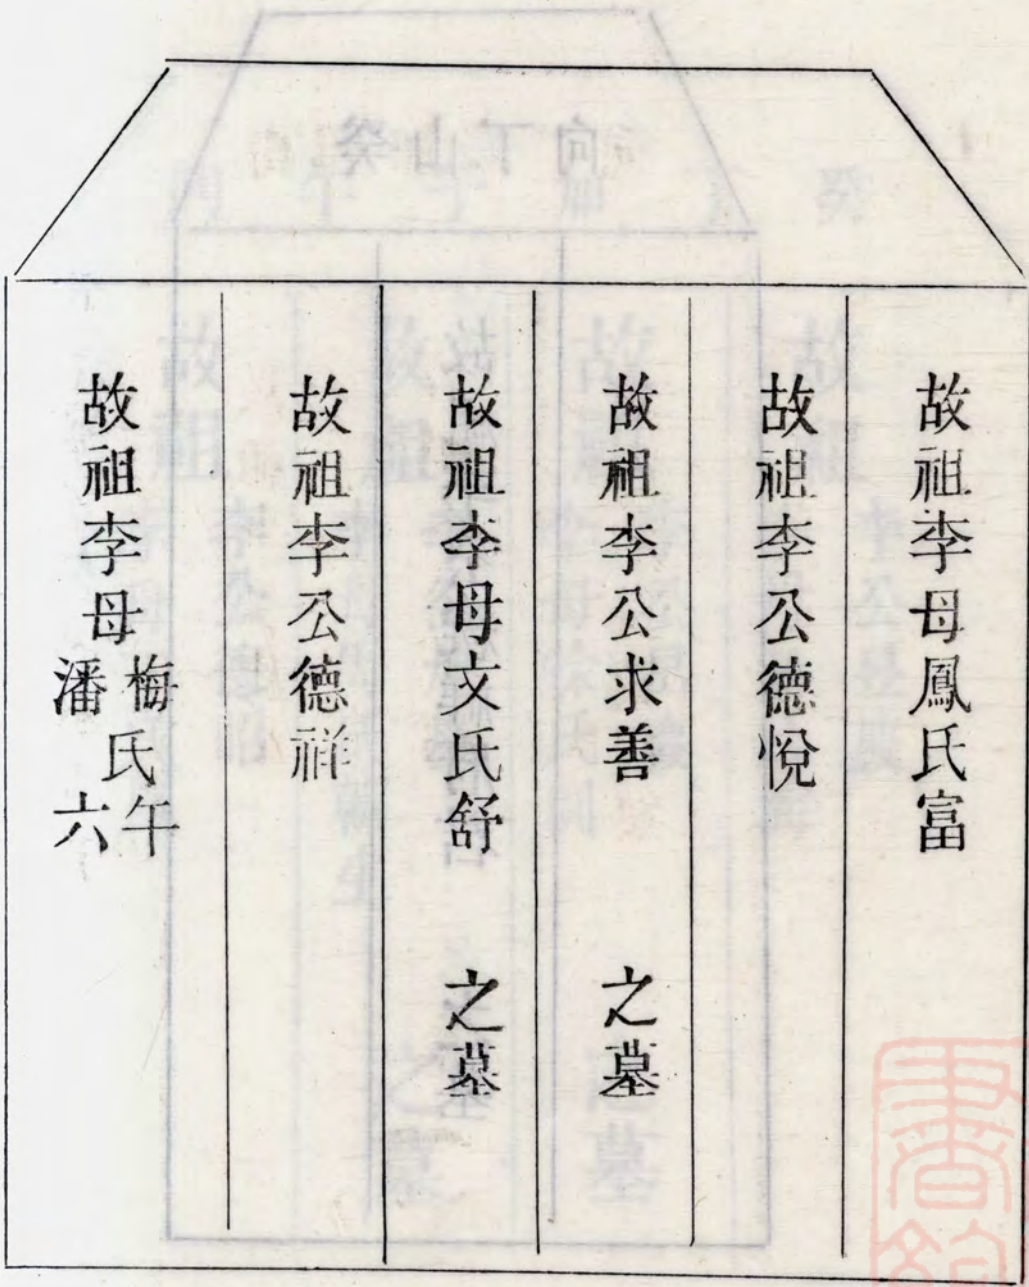 故祖李母鳳氏富
故祖李公德悅
故祖李公求善 之墓
故祖李母文氏舒 之墓
故祖李公德祥
故祖李母 梅氏午
潘 六